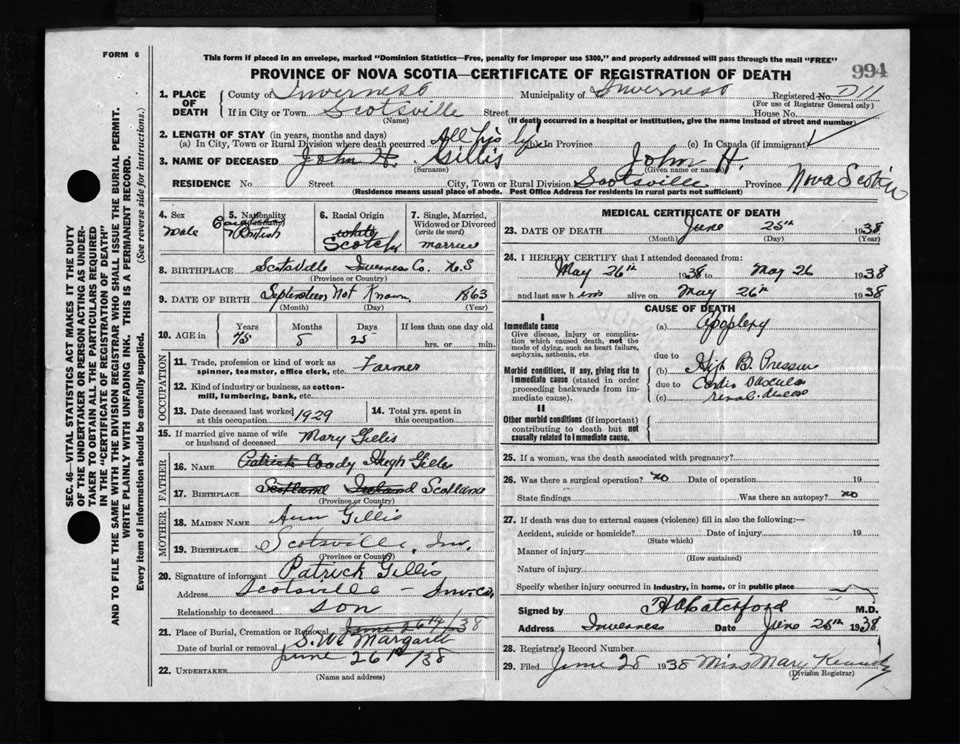 FORM 6
This form if placed in an envelope, marked "Dominion Statistics—Free, penalty for improper use $300," and properly addressed will pass through the mail "FREE"
994
PROVINCE OF NOVA SCOTIA—CERTIFICATE OF REGISTRATION OF DEATH
1. PLACE OF DEATH County of Inverness Municipality of Inverness Registered No. D11
(For use of Registrar General only)
If in City or Town Scotsville Street House No.
(Name) (If death occurred in a hospital or institution, give the name instead of street and number)
2. LENGTH OF STAY (in years, months and days)
(a) In City, Town or Rural Division where death occurred All his life (b) In Province (c) In Canada (if immigrant)
3. NAME OF DECEASED John H. Gillis John H.
(Surname) (Given name or names)
RESIDENCE No. Street City, Town or Rural Division Scotsville Province Nova Scotia
(Residence means usual place of abode. Post Office Address for residents in rural parts not sufficient)
4. Sex 5. Nationality 6. Racial Origin 7. Single, Married, Widowed or Divorced (write the word)
Male British White Scotch Married
8. BIRTHPLACE Scotsville Inverness Co. N.S
(Province or Country)
9. DATE OF BIRTH September Not Known 1863
(Month) (Day) (Year)
10. AGE in Years Months Days If less than one day old
75 8 25 hrs. or min.
OCCUPATION
11. Trade, profession or kind of work as spinner, teamster, office clerk, etc. Farmer
12. Kind of industry or business, as cotton-mill, lumbering, bank, etc.
13. Date deceased last worked at this occupation 1929 14. Total yrs. spent in this occupation
15. If married give name of wife or husband of deceased Mary Gillis
FATHER
16. NAME Patrick Coady Hugh Gillis
17. BIRTHPLACE Scotland Ireland Scotland
(Province or Country)
MOTHER
18. MAIDEN NAME Ann Gillis
19. BIRTHPLACE Scotsville, Inv.
(Province or Country)
20. Signature of informant Patrick Gillis
Address Scotsville - Inv. Co.
Relationship to deceased son
21. Place of Burial, Cremation or Removal June 26th/38 S.W. Margaree
Date of burial or removal June 26th/38
22. UNDERTAKER
(Name and address)
MEDICAL CERTIFICATE OF DEATH
23. DATE OF DEATH June 25th 1938
(Month) (Day) (Year)
24. I HEREBY CERTIFY that I attended deceased from:
May 26th 1938 to May 26 1938
and last saw him alive on May 26th 1938
CAUSE OF DEATH
I
Immediate cause (a) Apoplexy
Give disease, injury or complication which caused death, not the mode of dying, such as heart failure, asphyxia, asthenia, etc
due to
Morbid conditions, if any, giving rise to immediate cause (stated in order proceeding backwards from immediate cause).
(b) High B. Pressure
due to Cardio Vascular
(c) renal disease
II
Other morbid conditions (if important) contributing to death but not causally related to immediate cause.
25. If a woman, was the death associated with pregnancy?
26. Was there a surgical operation? no Date of operation 19
State findings Was there an autopsy? no
27. If death was due to external causes (violence) fill in also the following:—
Accident, suicide or homicide? Date of injury 19
(State which)
Manner of injury
(How sustained)
Nature of injury
Specify whether injury occurred in industry, in home, or in public place
Signed by M.D.
Address Inverness Date June 25th 1938
28. Registrar's Record Number
29. Filed June 28 1938 Miss Mary Kennedy
(Division Registrar)
SEC. 46—VITAL STATISTICS ACT MAKES IT THE DUTY
OF THE UNDERTAKER OR PERSON ACTING AS UNDER-
TAKER TO OBTAIN ALL THE PARTICULARS REQUIRED
IN THE "CERTIFICATE OF REGISTRATION OF DEATH"
AND TO FILE THE SAME WITH THE DIVISION REGISTRAR WHO SHALL ISSUE THE BURIAL PERMIT.
WRITE PLAINLY WITH UNFADING INK. THIS IS A PERMANENT RECORD.
Every item of information should be carefully supplied. (See reverse side for instructions.)